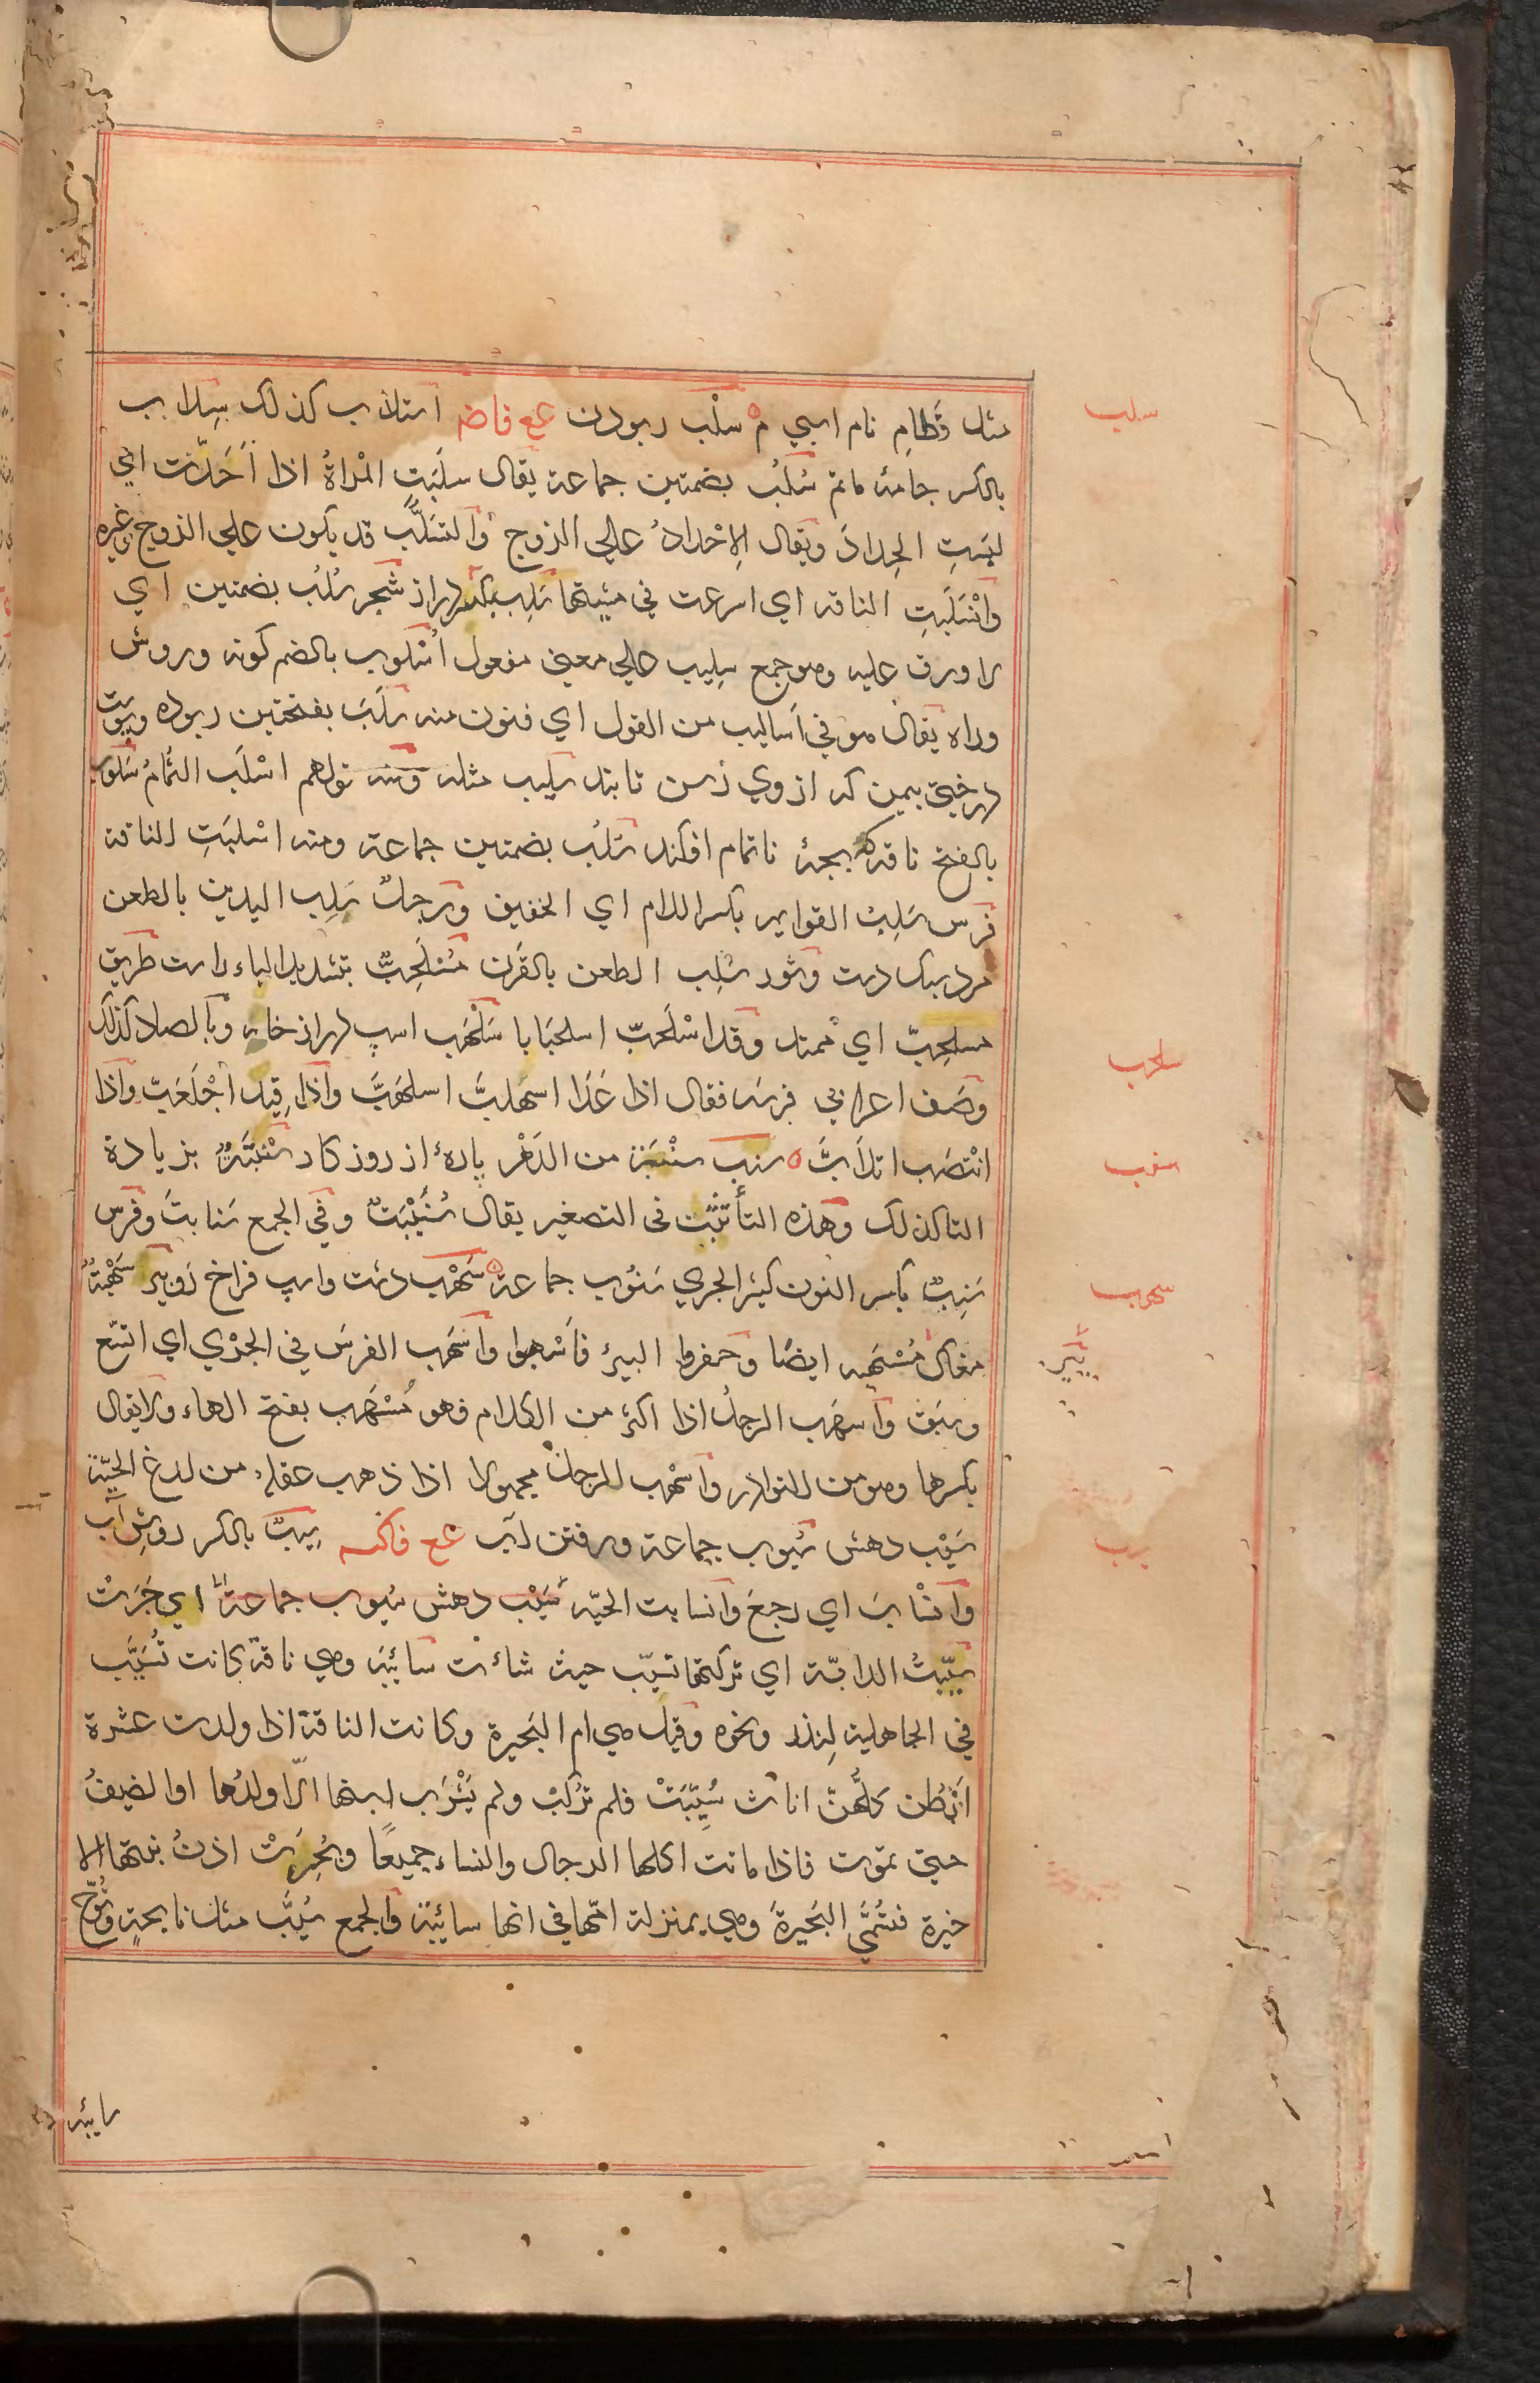 مثل قَطامِ نام اسپي م سلْب ربودن عع فاضم استلاب كذلك سِلاب
بالكسر جامهٔ ماتم سُلُب بضمتين جماعة يقال سلّبَتِ المْراةُ اذا اَحَدّت اي
لبِسَتِ الحِدادَ ويقال الاِحْدادُ علي الزوج والتسَلُّب قد يكون علي الزوج وغيره
وانْسَلَبَتِ الناقه اي اسرعت في مشيتها سَلِب بكسر دراز شجر سُلُب بضمتين اي
لا ورق عليه وهو جمع سِليب علي معني مفعول اُسْلوب بالضم كونه وروش
وراه يقال هو في اَساليب من القول اي فنون منه سَلَبَ بفتحتين ربوده وپوست
درختي بيمن كه ازوي رسن تابند سَليب مثله ومنه قولهم اسْلَب الثُّمامُ سَلوب
بالفتح ناقه كه بچهٔ ناتمام افكند سُلُب بضمتين جماعة ومنه اسْلبَتِ الناقة
فرس سَلِبُ القوايم بكسر اللام اي الخفيف ورجلٌ سَلِب اليدين بالطعن
مرد سبك دست وثور سَلِب الطعن بالقَرن مُسْلَحِبٌّ بتشديد الباء راست طريق
مسلحِبّ اي ممتد وقد اسْلَحَبّ اسلحبَابا سَلْهَب اسپ دراز خانه وبالصاد كذلك
وصَف اعرابي فرسَه فقال اذا عَدَا اسمهلبَّ اسلهَبَّ واذا قِيد اجْلَعَبّ واذا
انْتصَب اتلأَبَّ سنب سنْبَة من الدَهْر پارهٔ از روزكار سَنْبَتَةٌ بزيادة
التا كذلك وهذه التأ تثبُت فى التصغير يقال سُنَيْبَتَةٌ وفي الجمع سَنابتَ وفرَس
سَنِبٌ بكسر النون كثير الجري سَنُوب جماعة سَهْب دشت واسپ فراخ رَو بير سَهْبَةٌ
مغاك مُسْهَبه ايضًا وحفروا البيرَ فاَسْهبوا واَسْهَب الفرسَ في الجَرْي اي اتسع
وسَبَق واَسهَب الرجلُ اذا اكثر من الكلام فهو مُسْهَب بفتح الهاء ولا يقال
بكسرها وهو من النوادر واُسْهِب الرجلُ مجهولا اذا ذهب عقلهُ من لدغ الحيّة
سَيْب دهش سُيوب جماعة ورفتن آب عع فاكسه سِيبٌ بالكسر روشِ آب
وانْسابَ اي رجعَ وانسابت الحيّة سَيْب دهش سُيوب جماعة اي جَرَتْ
سيّبتُ الدابّة اي تركتها تسيّب حيث شاءت سائبَة وهي ناقة كانت تُسَيَّب
في الجاهلية لِنذر ونحوه وقيل هي ام البَحيرة وكانت الناقة اذا ولدت عشرة
اَبْطُن كلُّهنّ اناث سُيِّبَتْ فلم تُركَبْ ولم يَشْرَب لبنها الّا ولدُها او الضيفُ
حتي تموت فاذا ماتت اكلها الرجال والنساء جميعًا وبُحِرَتْ اذنُ بنتها الا
خيرة فتُسَمَّي البَحيرةَ وهي بمنزلة امّها في انها سائبة والجمع سُيَّب مثل نايحةٍ ونُوَّح
سلب
سلحب
سنب
سهب
بير
سيب
سايبه